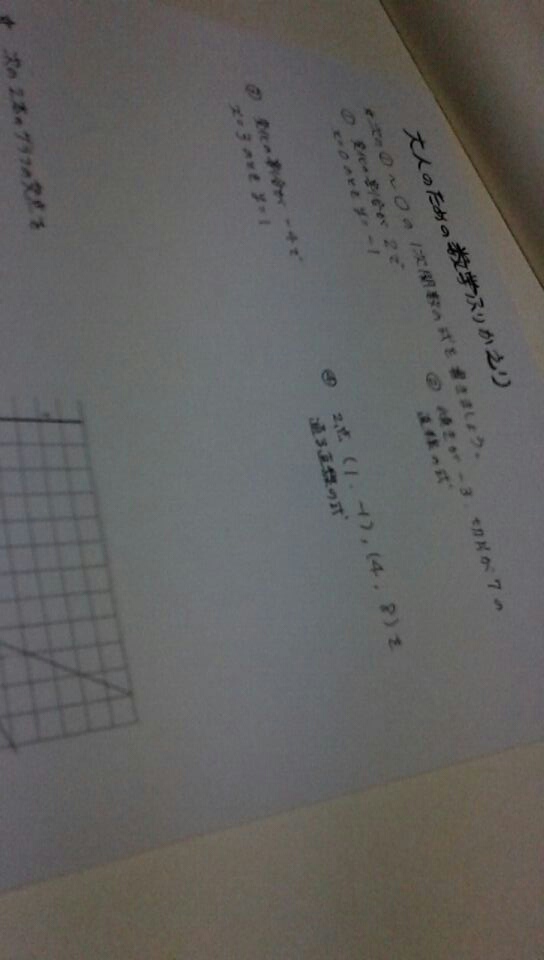 大人のための数学ふりかえり
次の①〜の1次関数の式を書きましょう。
① 変化の割合が 2で
x=0のとき y=-1
② 傾きが -3, 切片が 7の
直線の式
③ 変化の割合が -4で
x=3のとき y=1
④ 2点 (1, -4), (4, 8)を
通る直線の式
次の2直線のグラフの交点を